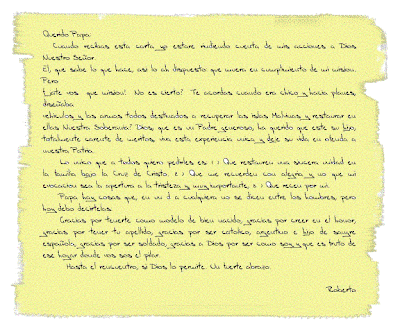 Querido Papa:
Cuando recibas esta carta yo estare rindiendo cuenta de mis acciones a Dios
Nuestro Señor.
El, que sabe lo que hace, asi lo ah dispuesto: que muera en cumplimiento de mi mision.
Pero
fijate vos que mision! No es cierto? Te acordas cuando era chico y hacia planes,
diseñaba
vehiculos y las armas todos destinados a recuperar las islas Malvinas y restaurar en
ellas Nuestra Soberania? Dios, que es un Padre generoso, ha querido que este su hijo,
totalmente carente de meritos, viva esta experiencia unica y deje su vida en ofrenda a
nuestra Patria.
Lo unico que a todos quiero pedirles es: 1) Que restauren una sincera unidad en
la familia bajo la Cruz de Cristo. 2) Que me recuerden con alegria y no que mi
evocacion sea la apertura a la tristeza y muy importante, 3) Que recen por mi.
Papa hay cosas que, en un dia cualquiera no se dicen entre los hombres, pero
hoy debo decirtelas:
Gracias por tenerte como modelo de bien nacido, gracias por creer en el honor,
gracias por tener tu apellido, gracias por ser catolico, argentino e hijo de sangre
española, gracias por ser soldado, gracias a Dios por ser como soy y que es fruto de
ese hogar donde vos sos el pilar.
Hasta el reencuentro, si Dios lo permite. Un fuerte abrazo.
Roberto